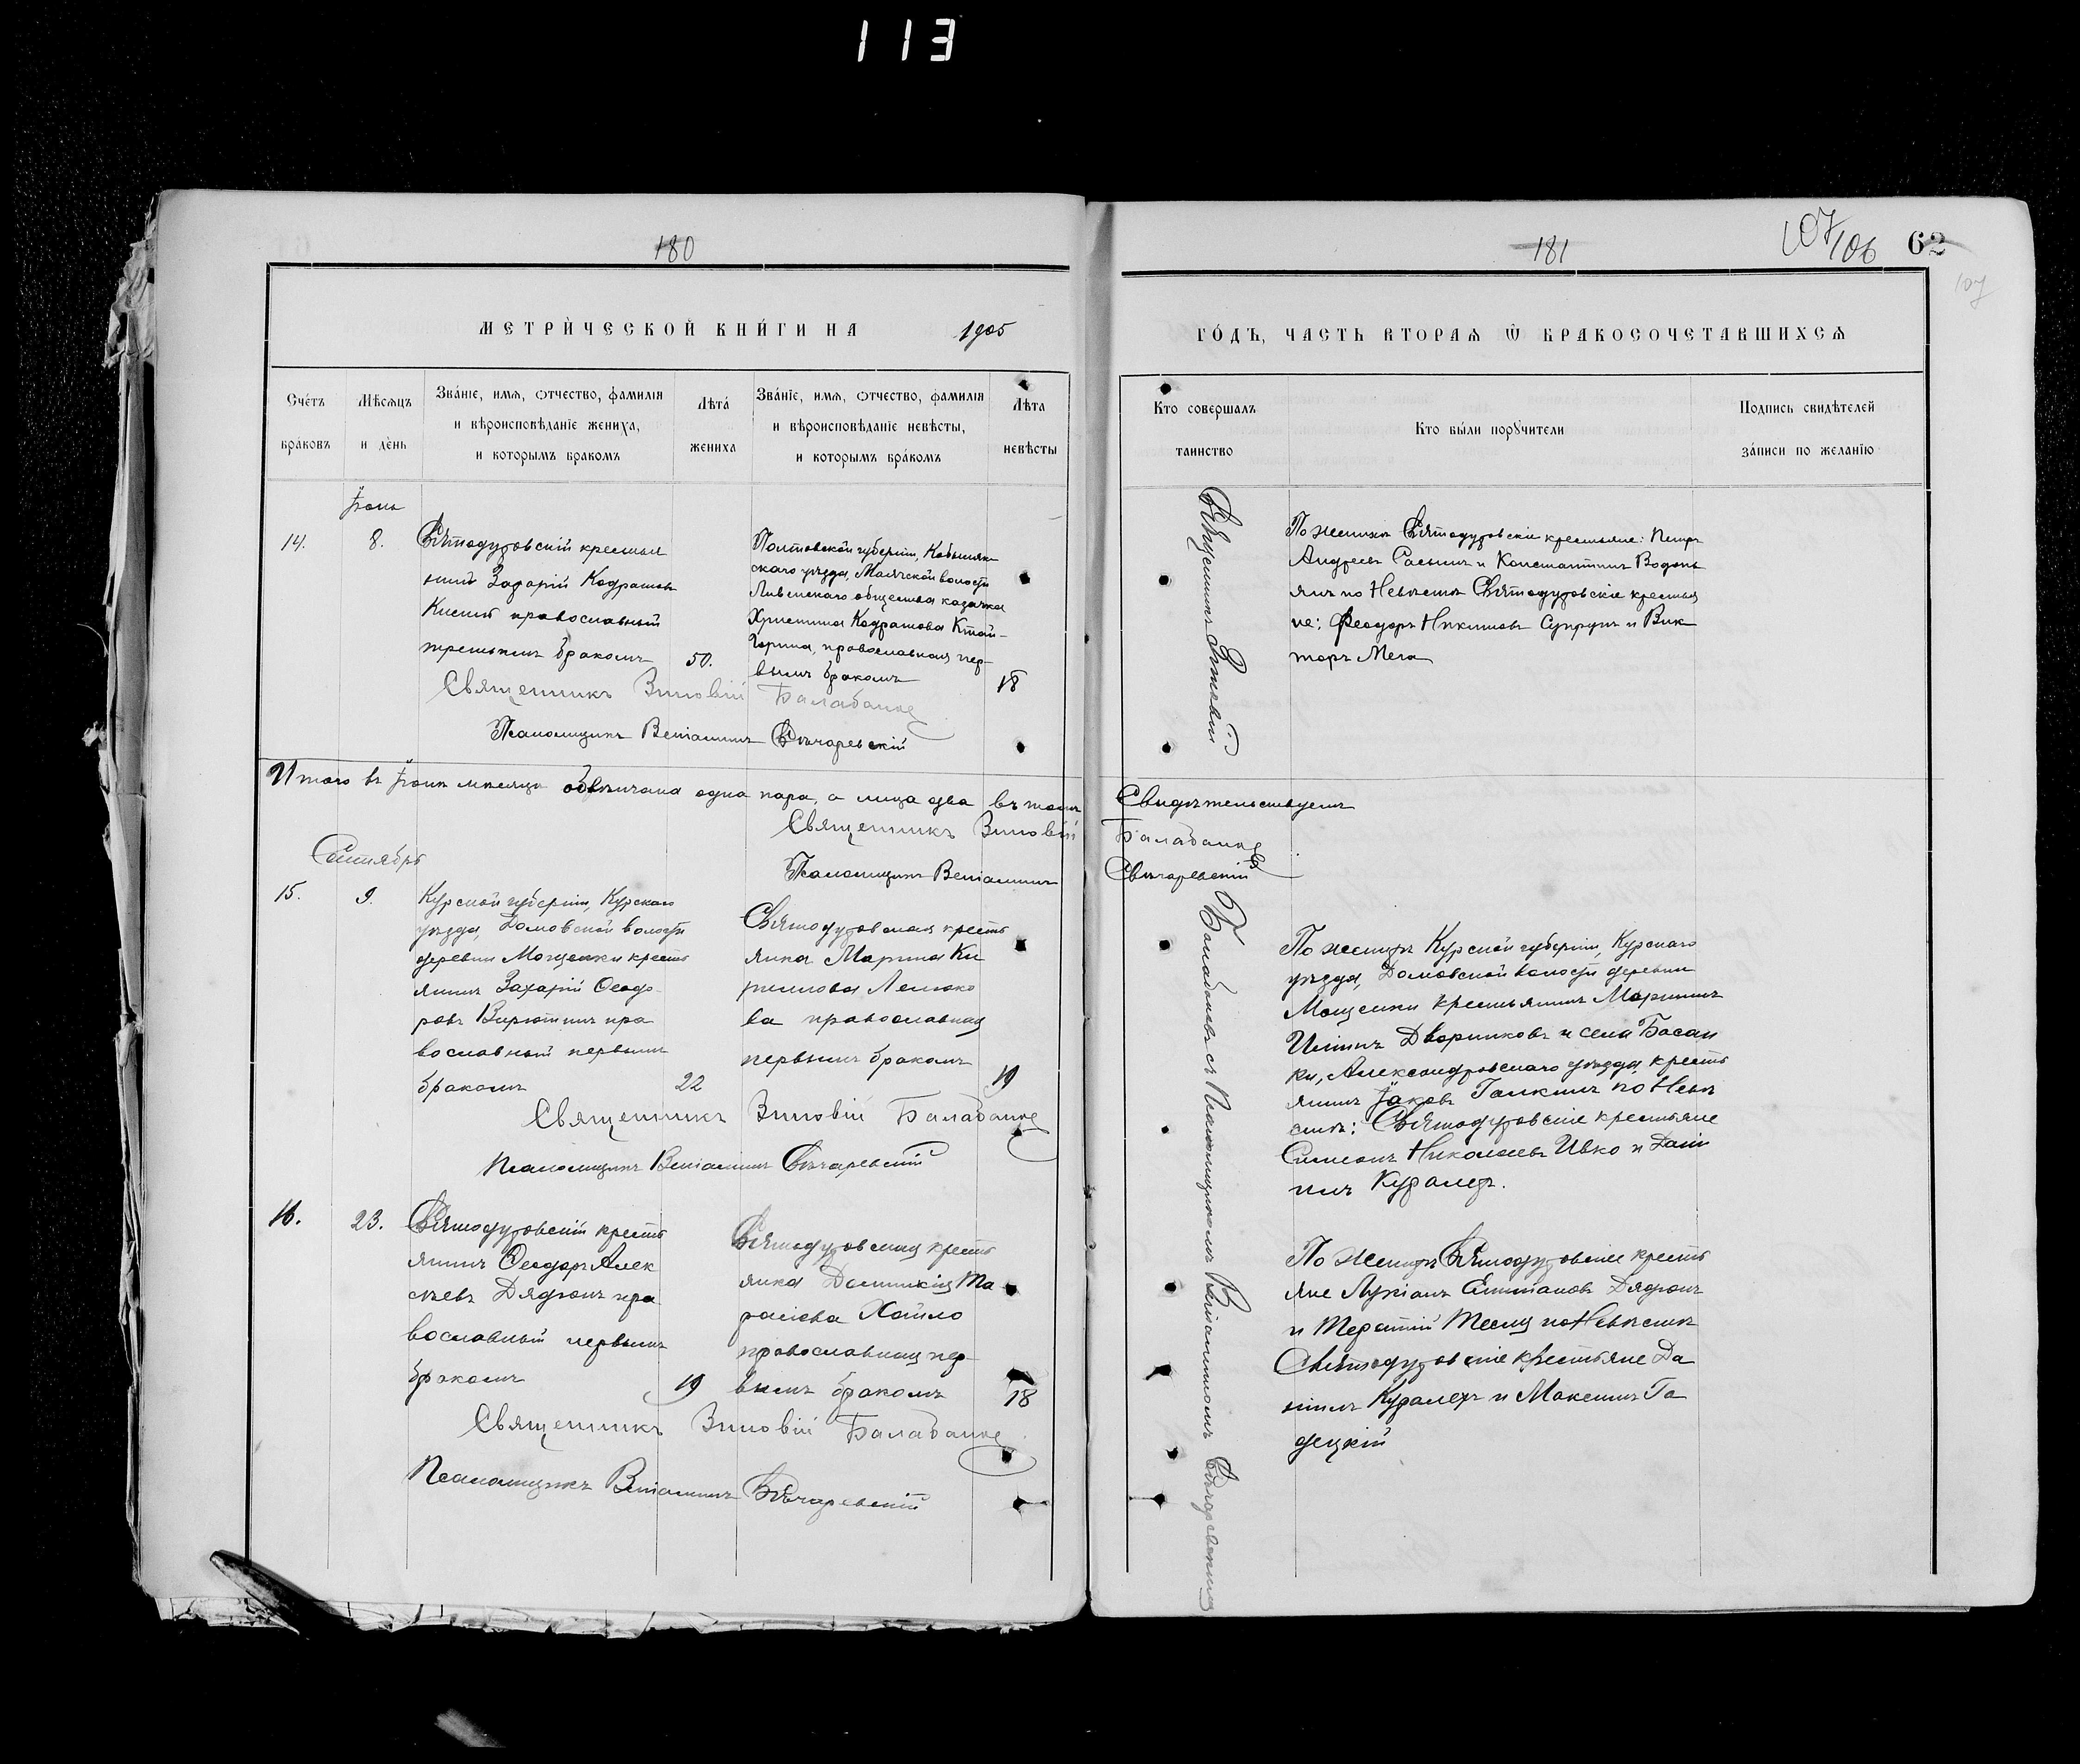 113
180
МЕТРИЧЕСКОЙ КНИГИ НА 1905
Счетъ браковъ
Мѣсяцъ и день
Званіе, имя, отчество, фамилія
и вѣроисповѣданіе жениха,
и которымъ бракомъ
Лѣта жениха
Званіе, имя, отчество, фамилія
и вѣроисповѣданіе невѣсты,
и которымъ бракомъ
Лѣта невѣсты
14.
8.
Святодуховскій крестья
нинъ Захарій Кодратовъ
православный
третьимъ бракомъ
50.
Полтавской губерніи, Кобыляк
скаго уѣзда, Маячской волости
Ливенскаго общества козачка
Христина Кодратова
православная пер-
вымъ бракомъ
18
Священникъ Зиновій Балабанов
Псаломщикъ Веніаминъ
Итого въ мѣсяцѣ обвѣнчана одна пара, а лица два въ томъ
Свидѣтельствуемъ
Священникъ Зиновій
Балабанов
Псаломщикъ Веніаминъ
Сентябрь
15.
9.
Курской губерніи, Курскаго
уѣзда, волости
деревни крестья
янинъ Захарій Ѳеодо
ровъ пра
вославный первымъ
бракомъ
22
Святодуховская кресть
янка Марина Ки
рилова
православная
первымъ бракомъ
19
Священникъ Зиновій Балабанов
Псаломщикъ Веніаминъ
16.
23.
Святодуховскій кресть
янинъ Ѳеодоръ Алек
сѣевъ Дядюнъ пра
вославный первымъ
бракомъ
19
Святодуховская кресть
янка Домникія Та
расіева Хайло
православная пер-
вымъ бракомъ
18
Священникъ Зиновій Балабанов
Псаломщикъ Веніаминъ
181
107
106
62
107
ГОДЪ, ЧАСТЬ ВТОРАЯ Ѡ БРАКОСОЧЕТАВШИХСЯ
Кто совершалъ таинство
Кто были поручители
Подпись свидѣтелей
записи по желанію
Священникъ Зиновій
Балабановъ съ Псаломщикомъ Веніаминомъ
По женихѣ Святодуховскіе крестьяне: Петръ
Андреевъ и Константинъ Водопь
янъ по Невѣстѣ Святодуховскіе крестья
не: Ѳеодоръ Никитовъ Супрунъ и Вик
торъ
По женихѣ Курской губерніи, Курскаго
уѣзда, волости деревни
крестьянинъ
Дворниковъ и села Басан
ки, Александровскаго уѣзда кресть
янинъ Іаковъ Галкинъ по Невѣ
стѣ: Святодуховскіе крестьяне
Симеонъ Николаевъ Ивко и Дані
илъ
По женихѣ Святодуховскіе кресть
яне Лукіанъ Дядюнъ
и Терентій по Невѣстѣ
Святодуховскіе крестьяне Да
ніилъ и Максимъ Га
децкій